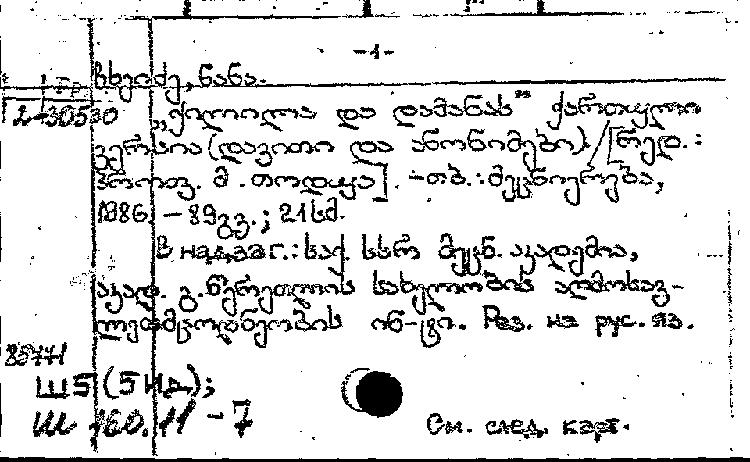 -1-
ჩხეიძე, ნანა.
Гр.
2-30530
„ქილილა და დამანას" ქართული
ვერსია (დავითი და ანონიმები). / [რედ.:
პროფ. მ. თოდუა]. - თბ.: მეცნიერება,
1986. - 89გვ.; 21სმ.
В надзаг.: საქ. სსრ მეცნ. აკადემია,
აკად. გ. წერეთლის სახელობის აღმოსავ-
ლეთმცოდნეობის ინ-ტი. Рез. на рус. яз.
85771
Ш5(5ИД);
Ш 160.11-7
См. след. карт.